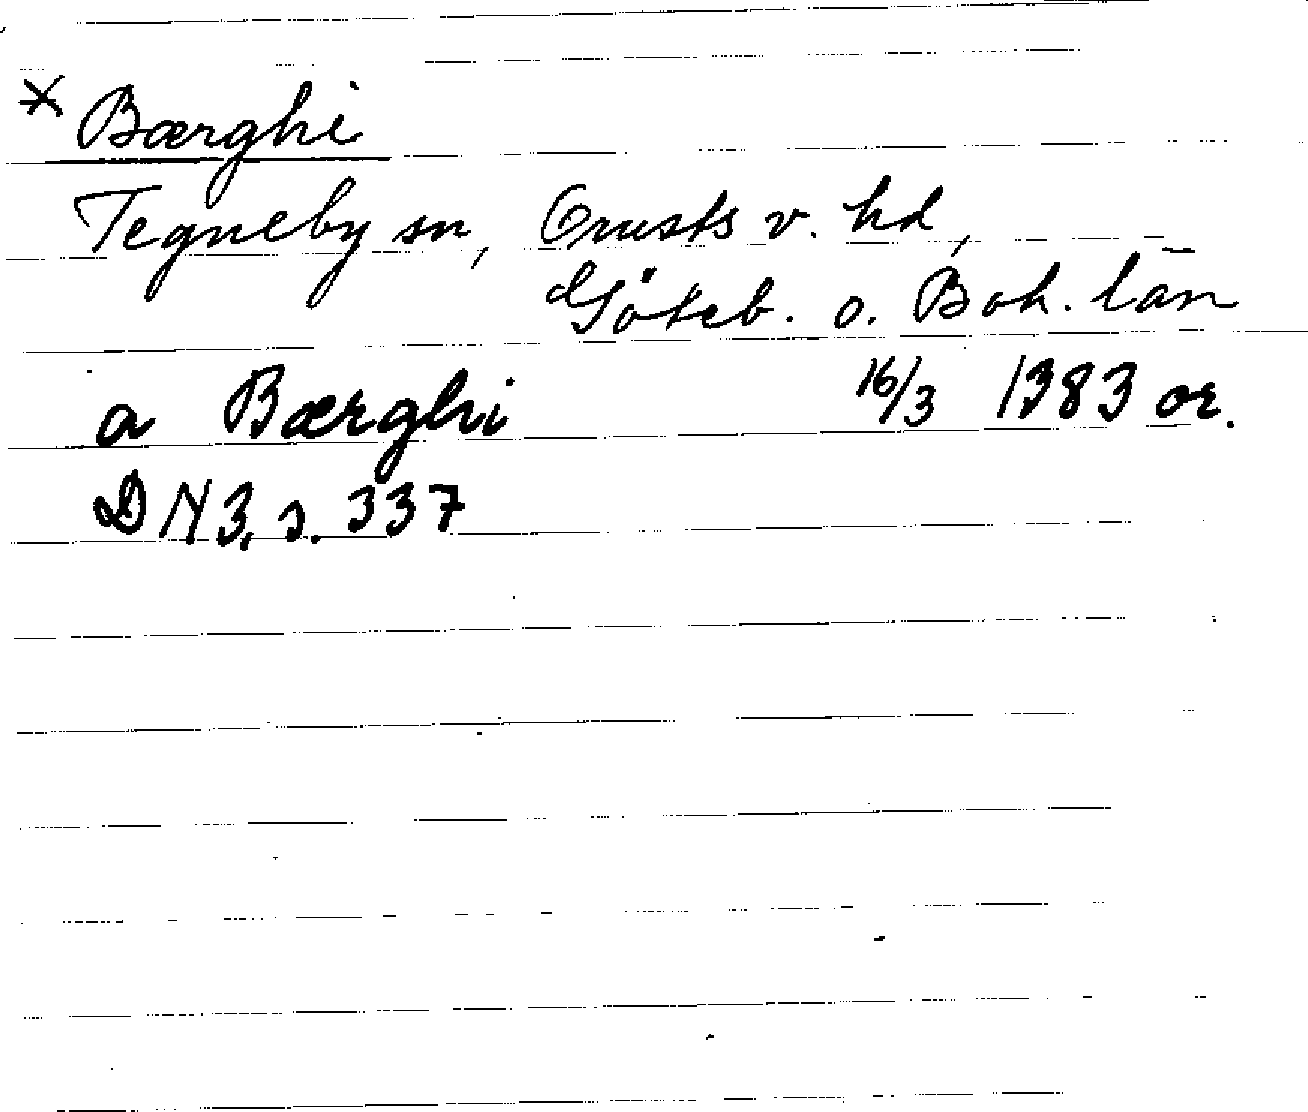 * Bærghi
Tegneby sn, Orusts v. hd,
Göteb. o. Boh. län
a Bærghi 16/3 1383 or.
DN 3, s. 337